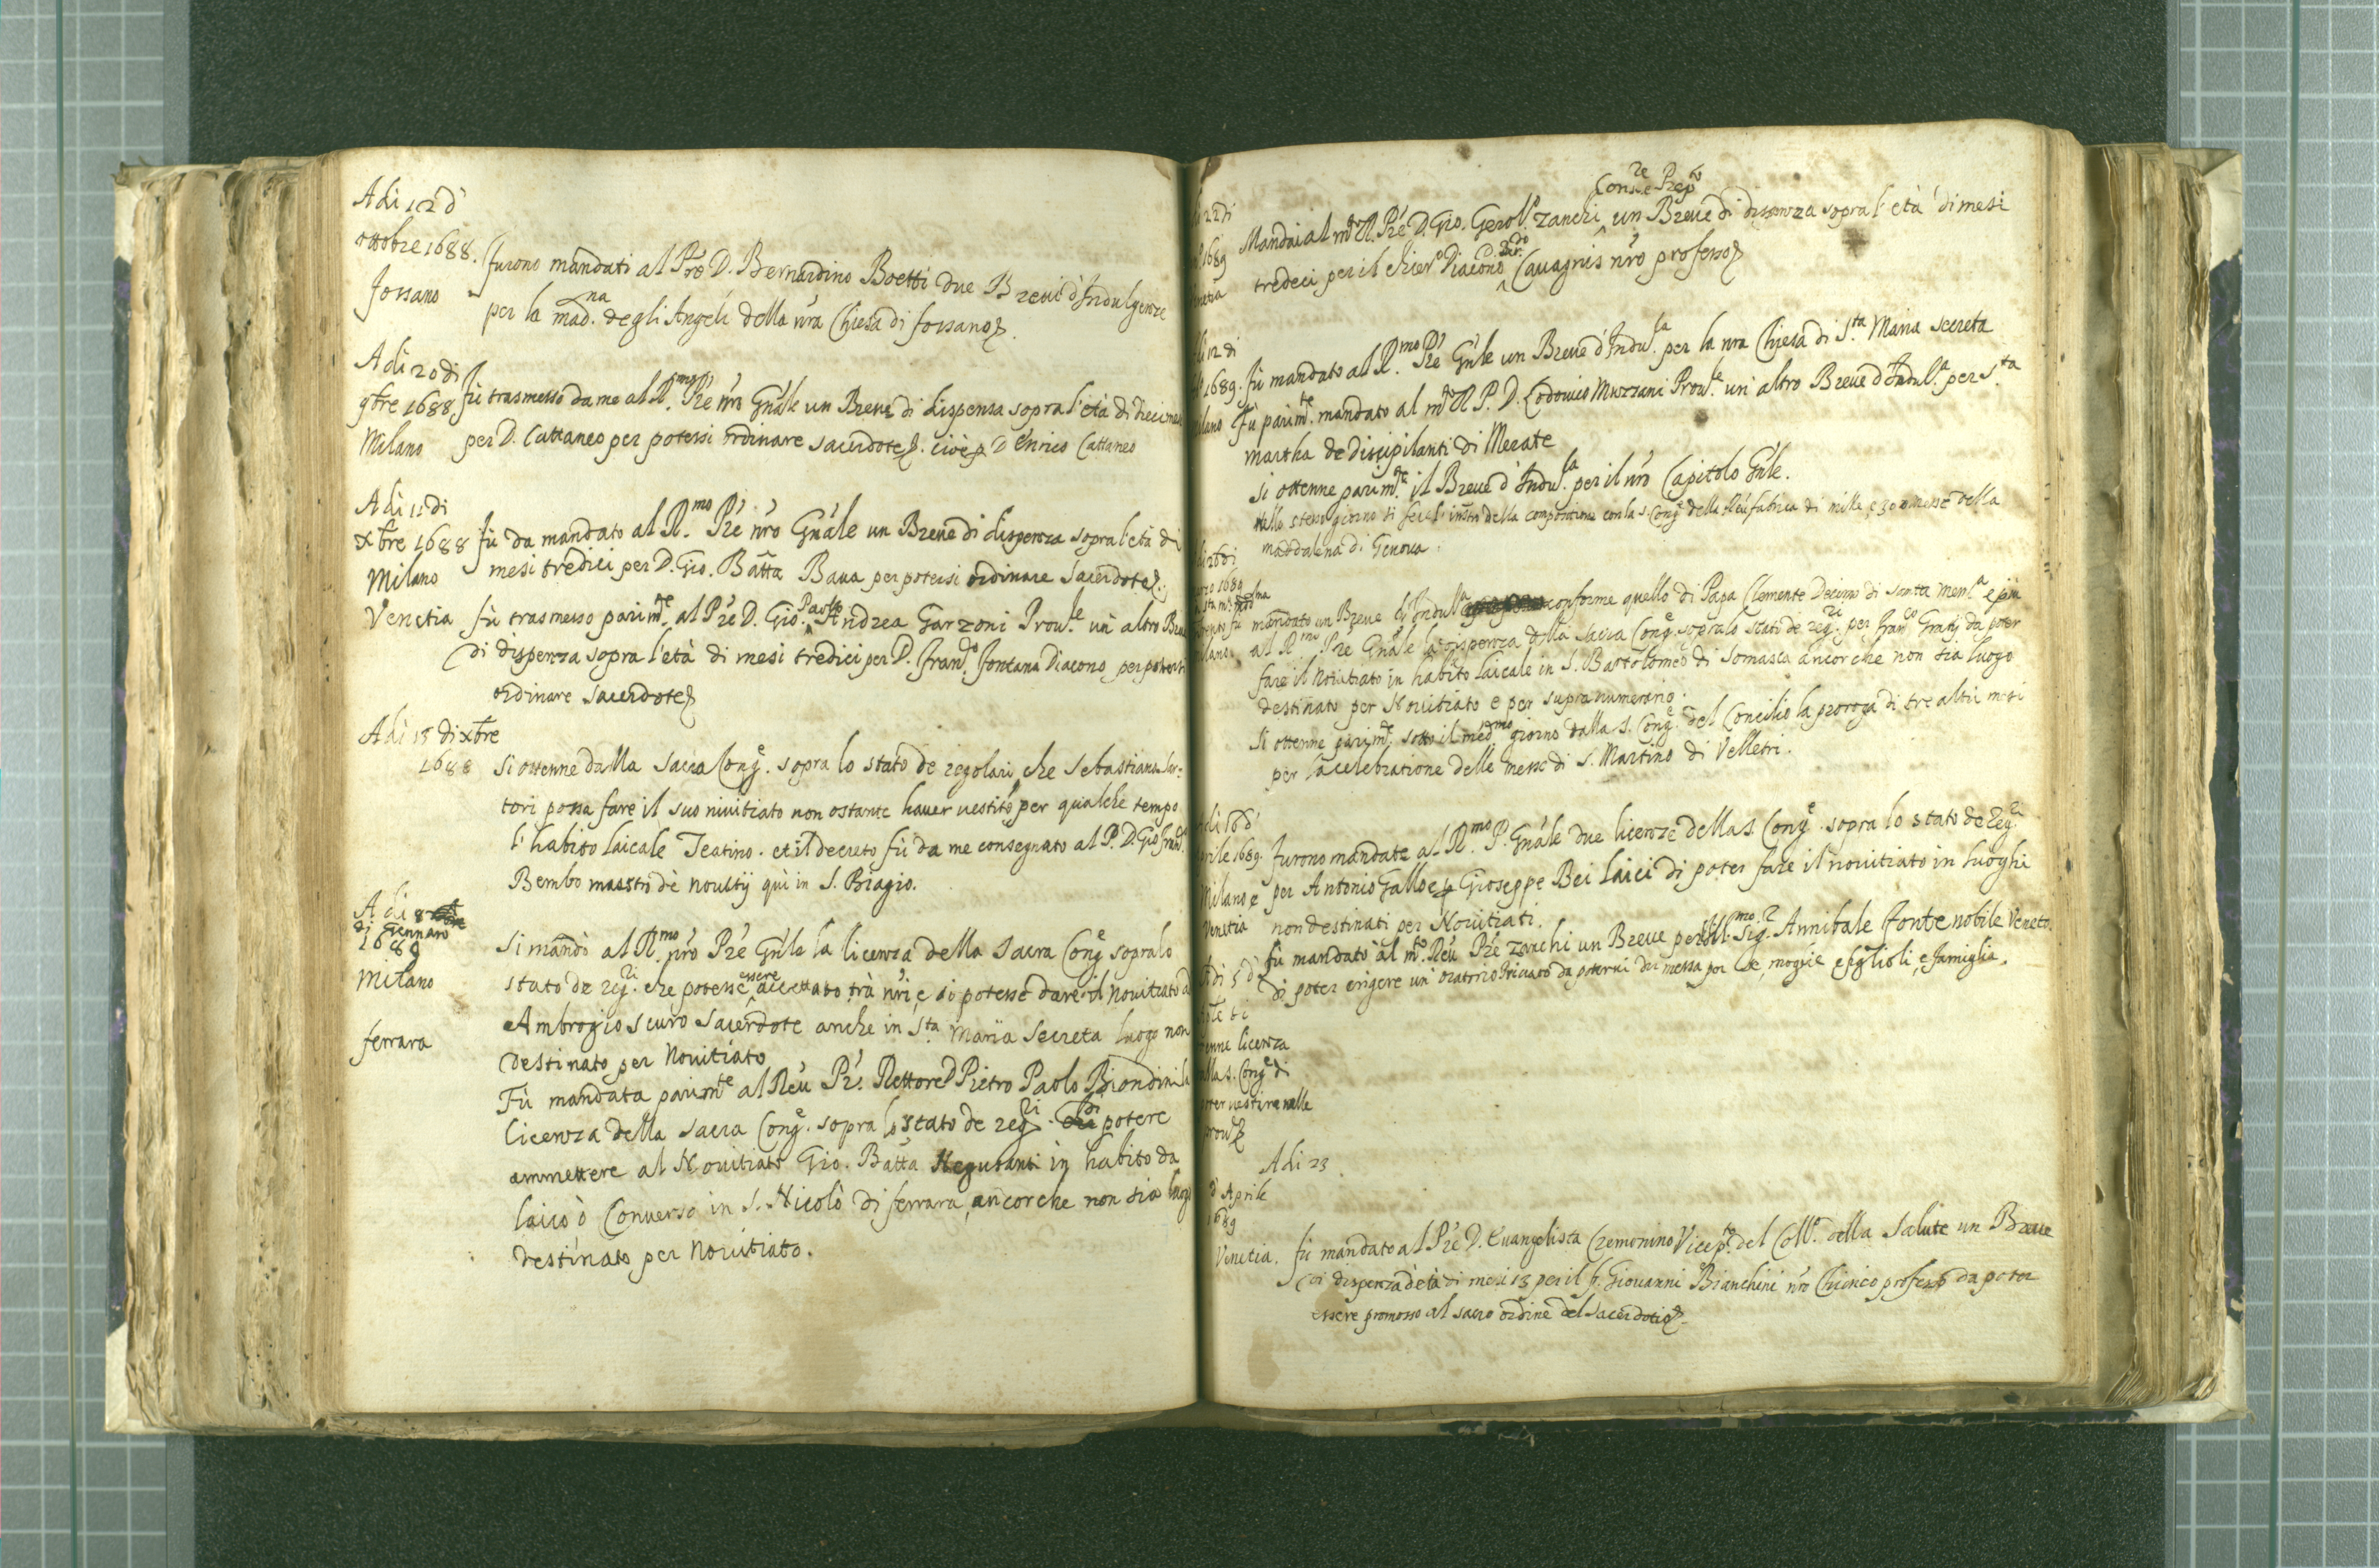 Adi 12 d'
ottobre 1688. furono mandati al Pre D. Bernardino Boetti due Breui d'Indulgenze
fossano per la mad.na degli Angeli della nrã Chiesa di fossano
Adi 20 di
9bre 1688 fù trasmesso da me al R.mo Pré nrõ Gnãle un Breue di dispensa sopra l'età di
Milano per D. Cattaneo per potersi ordinare sacerdote. cioè p D Enrico Cattaneo
Adi 11 di
xbre 1688 fù da mandato al R.mo Pré nrõ Gnãle un Breue di dispenza sopra l'età di
Milano mesi tredici per D. Gio. Batta Baua per potersi ordinare sacerdote.
Venetia fù trasmesso parim.te al Pré D. Gio. Paolo Andrea Garzoni Prou.le un altro
di dispenza sopra l'età di mesi tredici per D. fran.co fontana Diacono per
ordinare sacerdote
Adi 15 di xbre
1688 si ottenne dalla sacra Cong.e sopra lo stato de regolari che sebastiano
tori possa fare il suo nivitiato non ostante hauer uestito per qualche tempo
l'habito laicale Teatino. et il decreto fù da me consegnato al P. D. Gio fran.co
Bembo maestro dè nouitij quì in S. Biagio.
Adi 8
di Gennaro
1689 si mandò al R.mo nrõ Pré Gnãle la licenza della sacra Cong.e sopra lo
Milano stato de reg.ri che potesse essere accettato trà nri, e si potesse dare il Nouitiato
Ambrogio scuro sacerdote anche in S.ta Maria secreta luogo non
destinato per Nouitiato
ferrara Fù mandata parim.te al Reu Pr. Rettore D Pietro Paolo Biondini
licenza della sacra Cong.e sopra lo stato de reg.ri di potere
ammettere al Nouitiato Gio. Batta in habito da
laico ò Conuerso in S. Nicolò di ferrara, ancorche non sia
destinato per Nouitiato.
22 di
1689 Mandai al m.to R. Pré D. Gio. Gerol.o Zanchi un Breue di dispenza sopra l'età di mesi
tredeci per il chier.o Diacono Cauagnis nrõ professo
12 di
1689. fù mandato al R.mo Pré Gnãle un Breue d'Indu.la per la nra Chiesa di S.ta Maria secreta
Fù parim.te mandato al m.to R P. D. Lodouico Muzzani Prou.le un altro Breue d'Indul.a per S.ta
martha de discipilanti di Merate
si ottenne parim.te il Breue d'Indu.la per il nrõ Capitolo Gnãle.
Nello stesso giorno si fece l' della compositione con la s. Cong. della Reu fabrica di mille, e 300 messe della
maddalena di Genoua.
26 di
1689
mandato un Breue d'Indul.a conforme quello di Papa Clemente Decimo di santa mem.a
al R.mo Pré Gnãle la dispenza della sacra Cong.e sopra lo stato de reg.ri per fran.co da poter
fare il Nouitiato in habito laicale in S. Bartolomeo di somasca ancorche non sia luogo
destinato per Nouitiato e per supranumerario.
si ottenne parim.te sotto il med.mo giorno dalla s. Cong.e del Concilio la proroga di tre altri mesi
per la celebratione delle messe di S. Martino di Velletri.
16 d'
Aprile 1689. furono mandate al R.mo P. Gnãle due licenze della s Cong.e sopra lo stato de reg.ri
Milano e per Antonio Gallo e p Gioseppe Bei laici di poter fare il nouitiato in luoghi
Venetia non destinati per Nouitiati.
fù mandato al m.to Reu Pré Zanchi un Breue per Sig.r Annibale fonte nobile Veneto
di poter erigere un oratorio priuato da poterui dir messa per se, moglie e figlioli, e famiglia.
di 5 d'
licenza
s. Cong.e di
uestire nelle
Adi 23
d'Aprile
1689
Venetia. fù mandato al Pré D. Euangelista Cremonino Vicep.to del Coll.o della Salute un Breue
di dispenza d'età di mesi 13 per il f. Giouanni Bianchini nrõ Chierico professo da poter
essere promosso al sacro ordine del sacerdotio